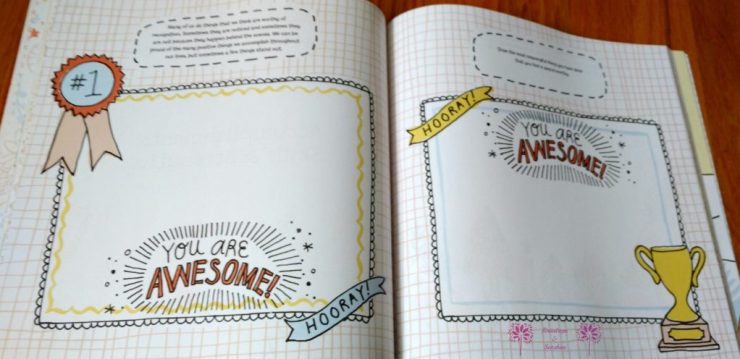 Many of us do things that we think are worthy of
recognition. Sometimes they are noticed and sometimes they
are not because they happen behind the scenes. We can be
proud of the many positive things we accomplish throughout
our lives, but sometimes a few things stand out.
#1
YOU ARE
AWESOME!
HOORAY!
Draw the most
that you feel is award worthy.
HOORAY!
YOU ARE
AWESOME!